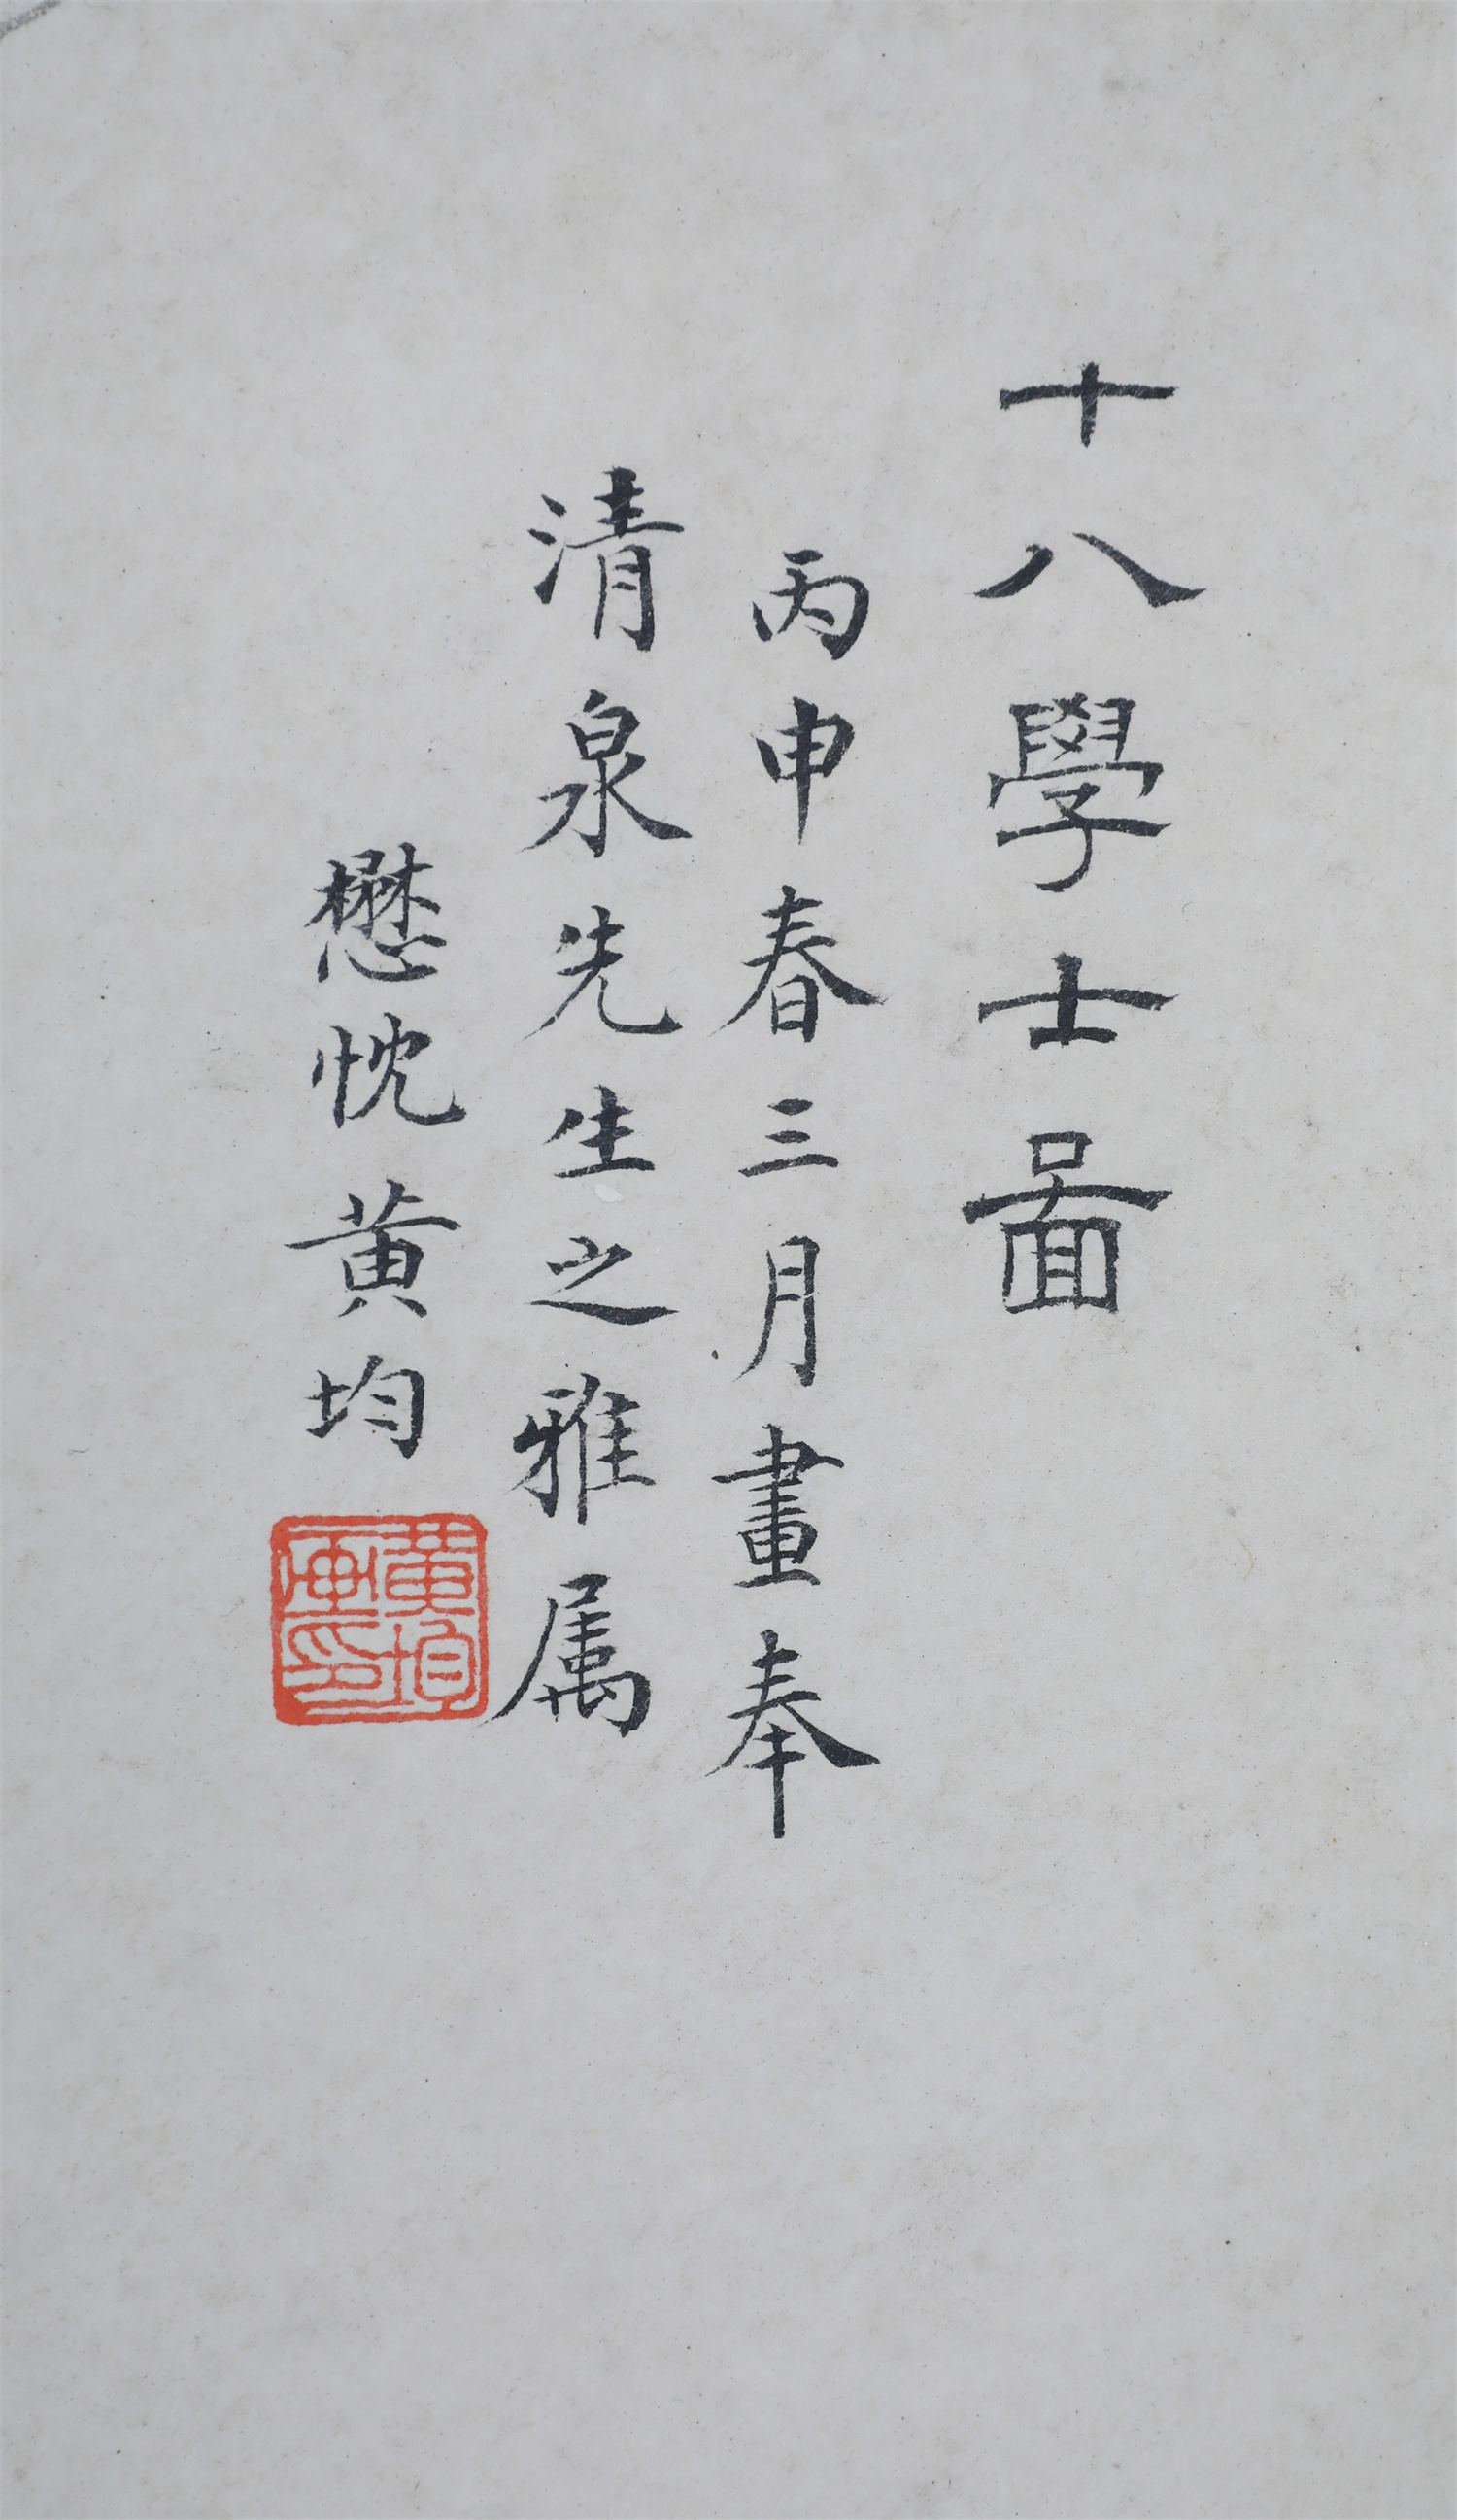 十八學士啚
丙申春三月畫奉
清泉先生之雅属
懋忱黄均
黄均画印